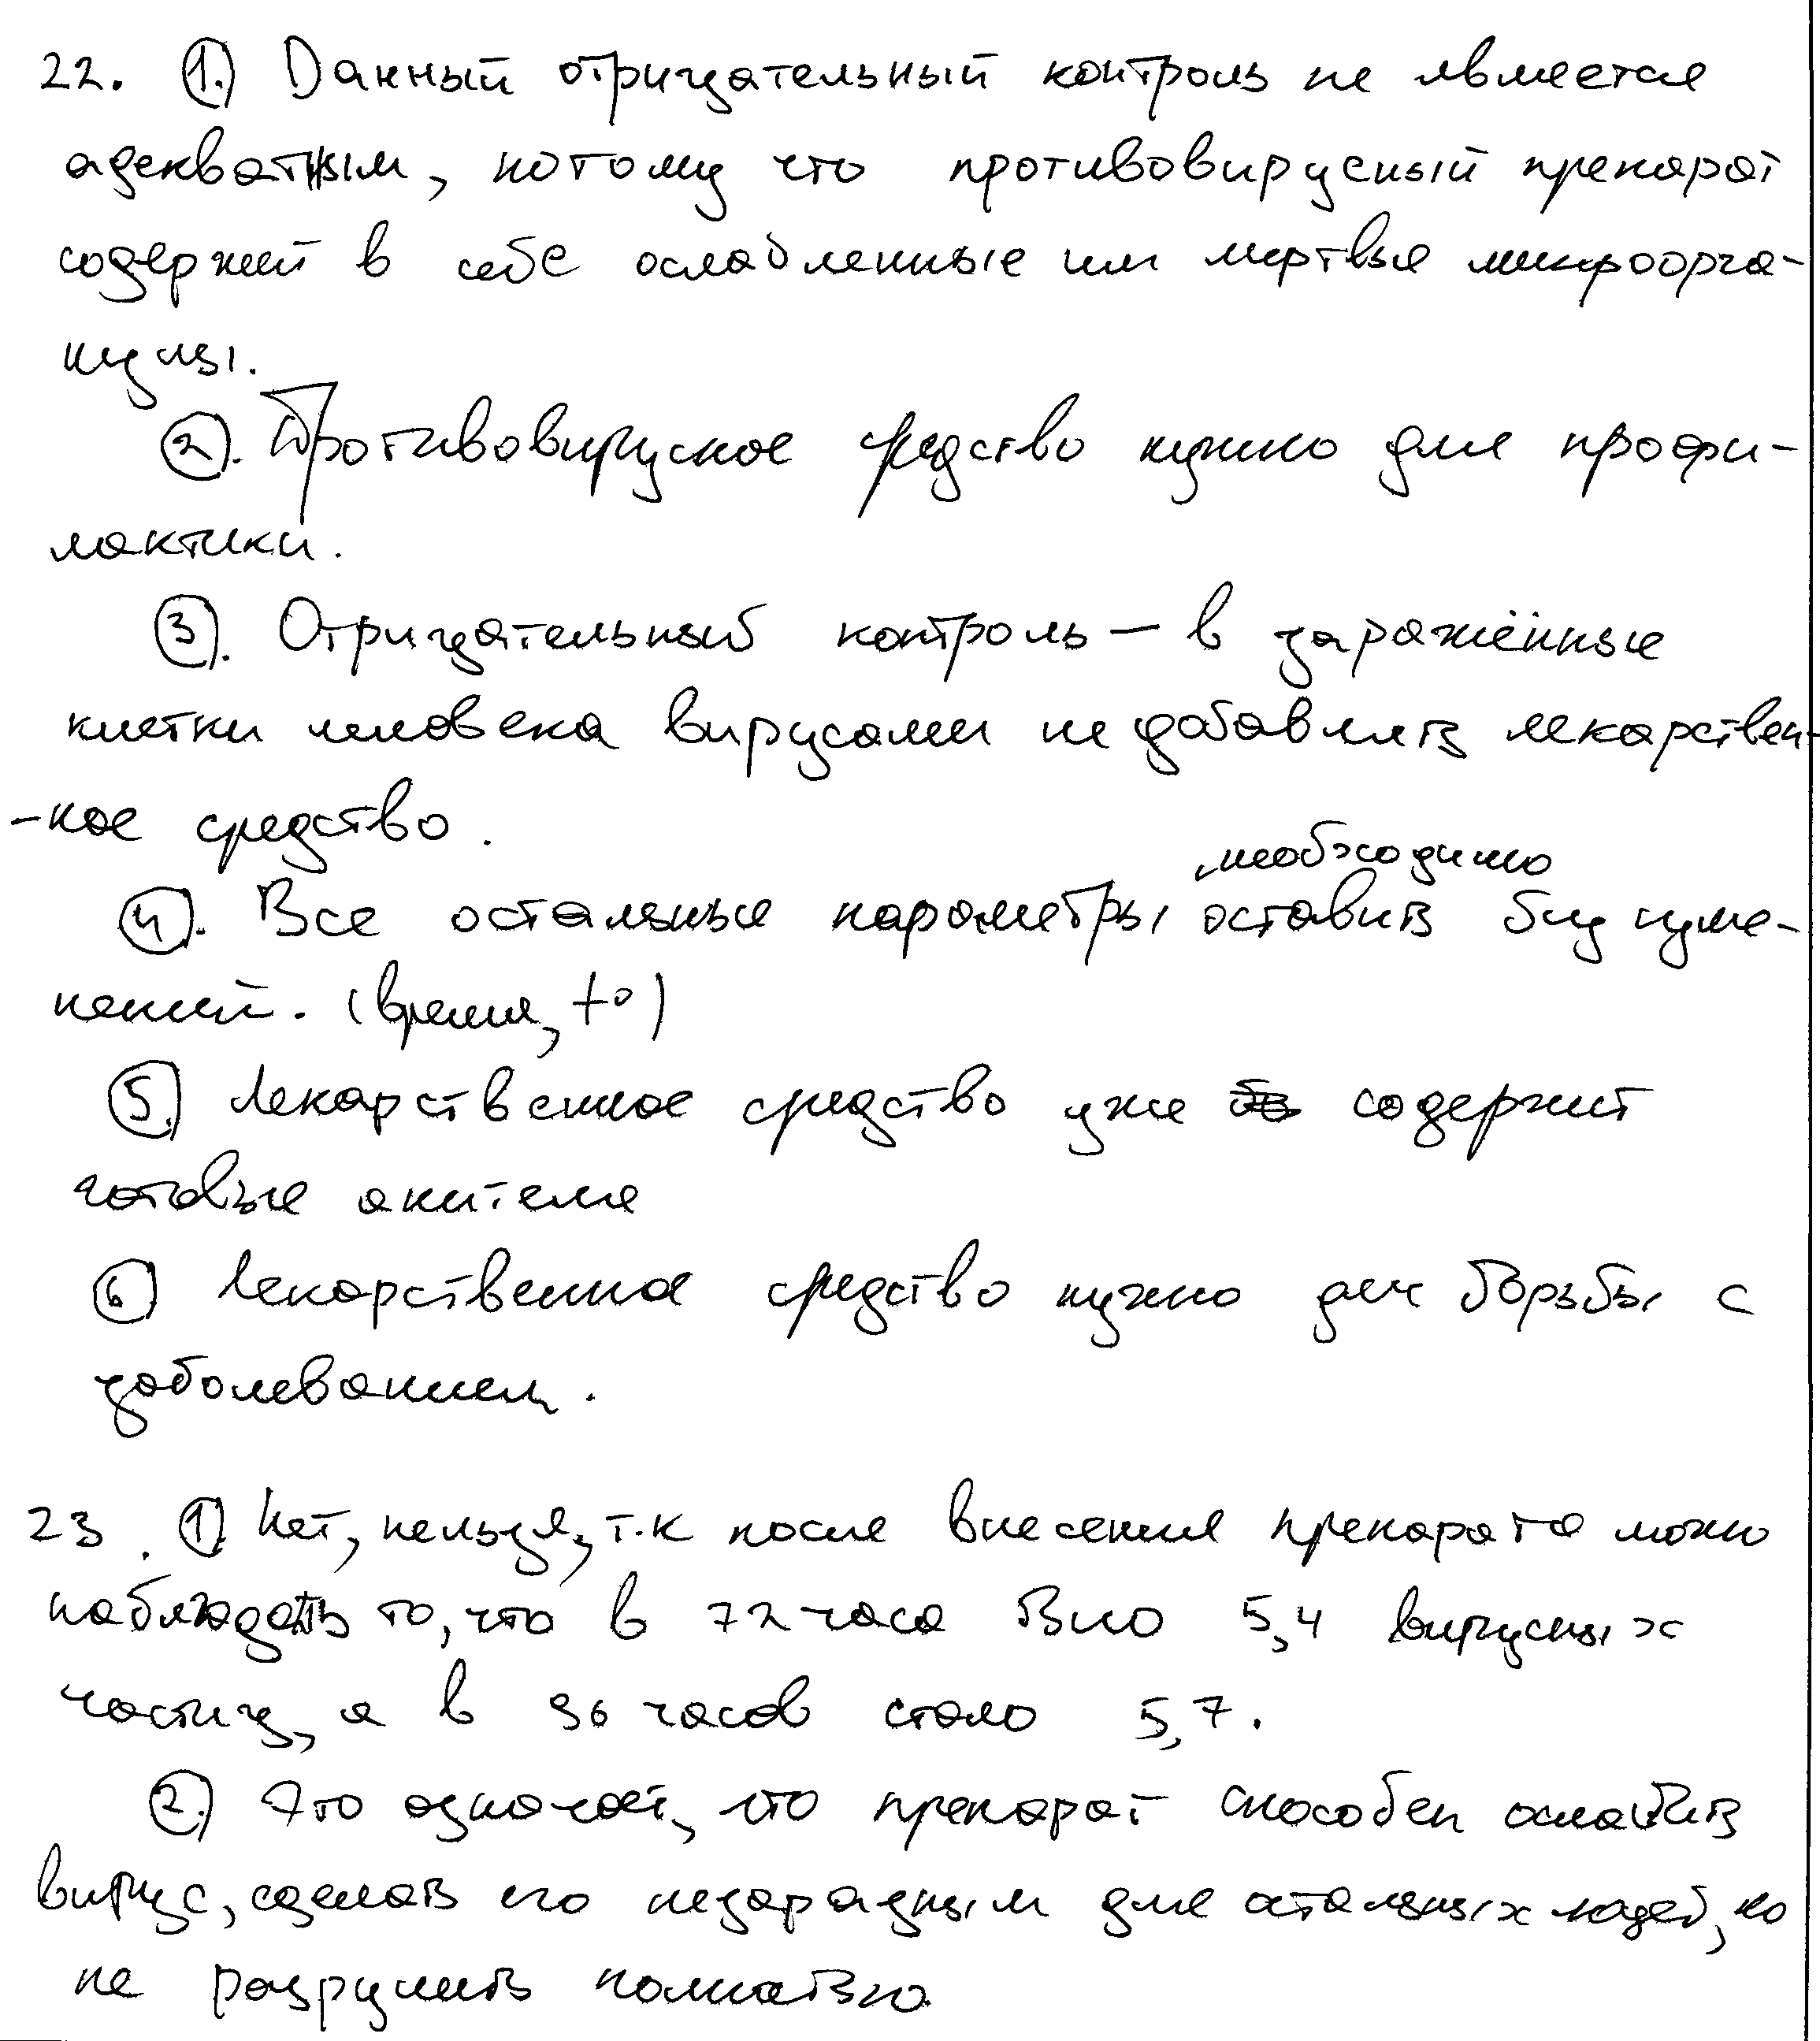 22. 1.) Данный отрицательный контроль не является
адекватным, потому что противовирусный препарат
содержит в себе ослабленные или мертвые микроорга-
низмы.
2). Противовирусное средство нужно для профи-
лактики.
3). Отрицательный контроль – в заражённые
клетки человека вирусами не добавлять лекарствен-
-ное средство.
4). Все остальные параметры необходимо оставить без изме-
нений. (время, t°)
5.) Лекарственное средство уже содержит
готовые анитела
6) Лекарственное средство нужно для борьбы с
заболеванием.
23. 1) Нет, нельзя, т.к после внесения препарата можно
наблюдать то, что в 72 часа было 5,4 вирусных
частиц, а в 96 часов стало 5,7.
2.) Это означает, что препарат способен ослабить
вирус, сделав его незаразным для остальных людей, но
не разрушить полностью.